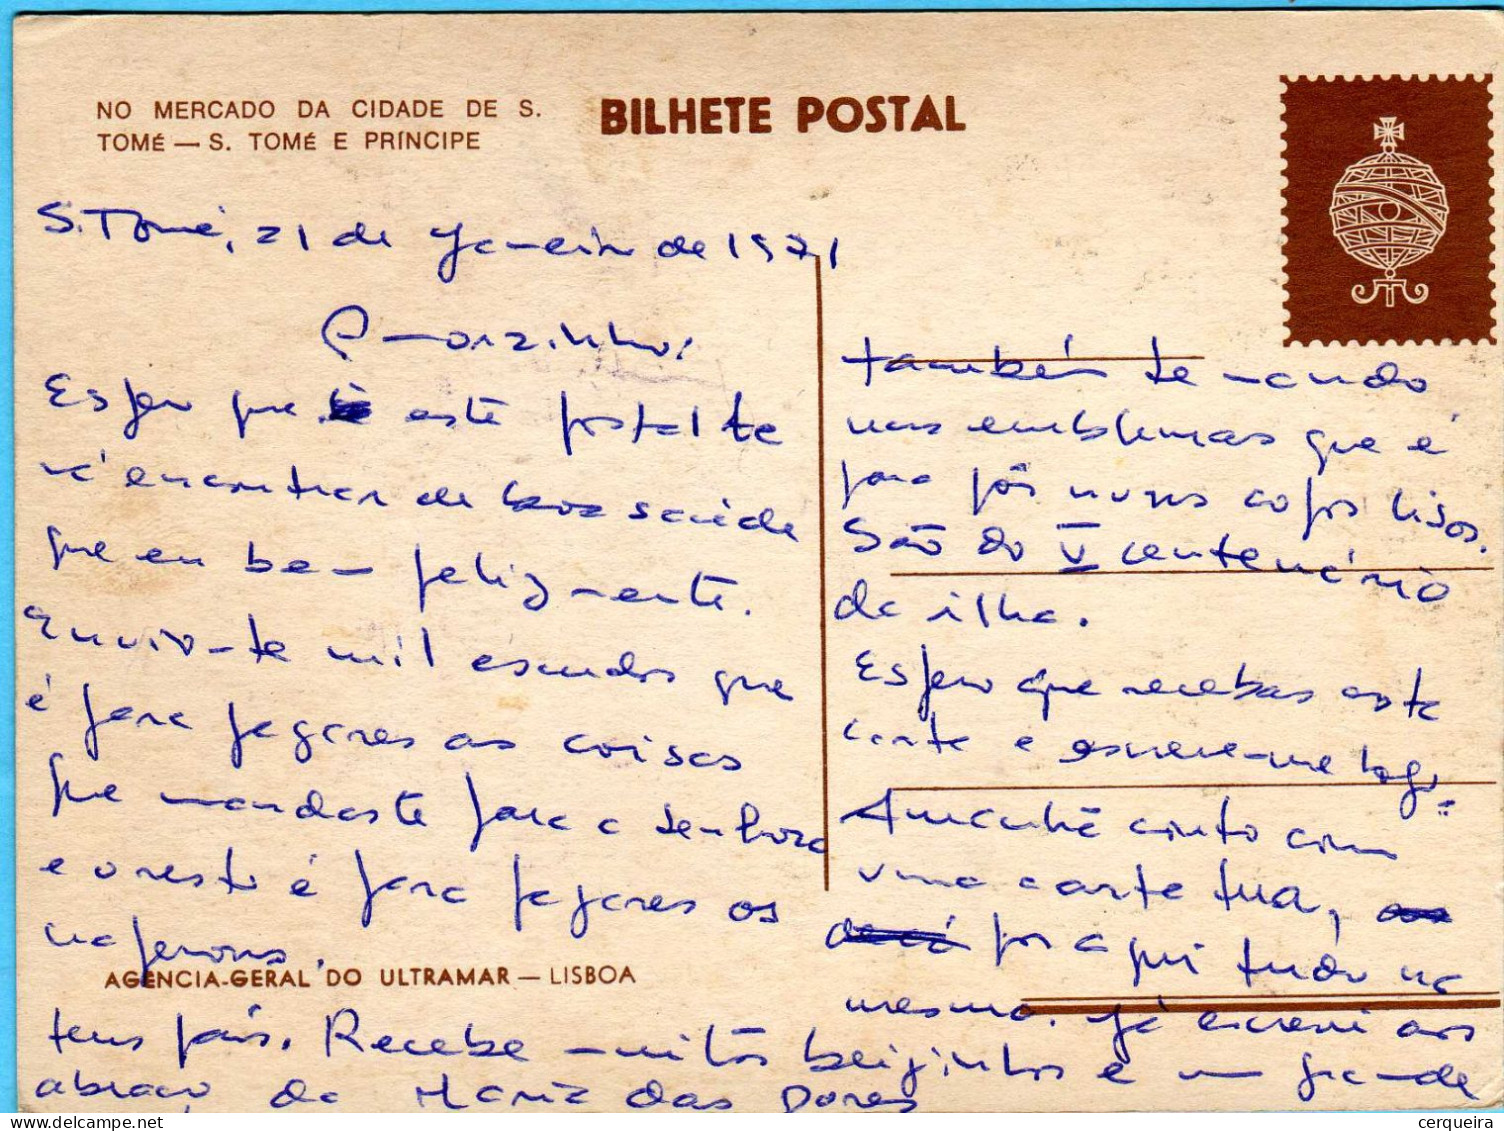 NO MERCADO DA CIDADE DE S.
TOMÉ — S. TOMÉ E PRÍNCIPE
BILHETE POSTAL
S. Tomé, 21 de Janeiro de 1971
Amorzinho:
Espero que este postal te
vá encontrar de boa saúde
que eu bem felizmente.
Envio-te mil escudos que
é para pagares as coisas
que mandaste para a senhora
e o resto é para pagares os
naperons.
também te mando
uns emblemas que é
para pôr nuns copos lisos.
São do V centenário
da ilha.
Espero que recebas esta
carta e escreve-me logo.
Amanhã conto com
uma carta tua,
por aqui tudo na
mesma. Já escrevi aos
teus pais. Recebe muitos beijinhos e um grande
abraço da Maria das Dores
AGÊNCIA-GERAL DO ULTRAMAR — LISBOA
cerqueira